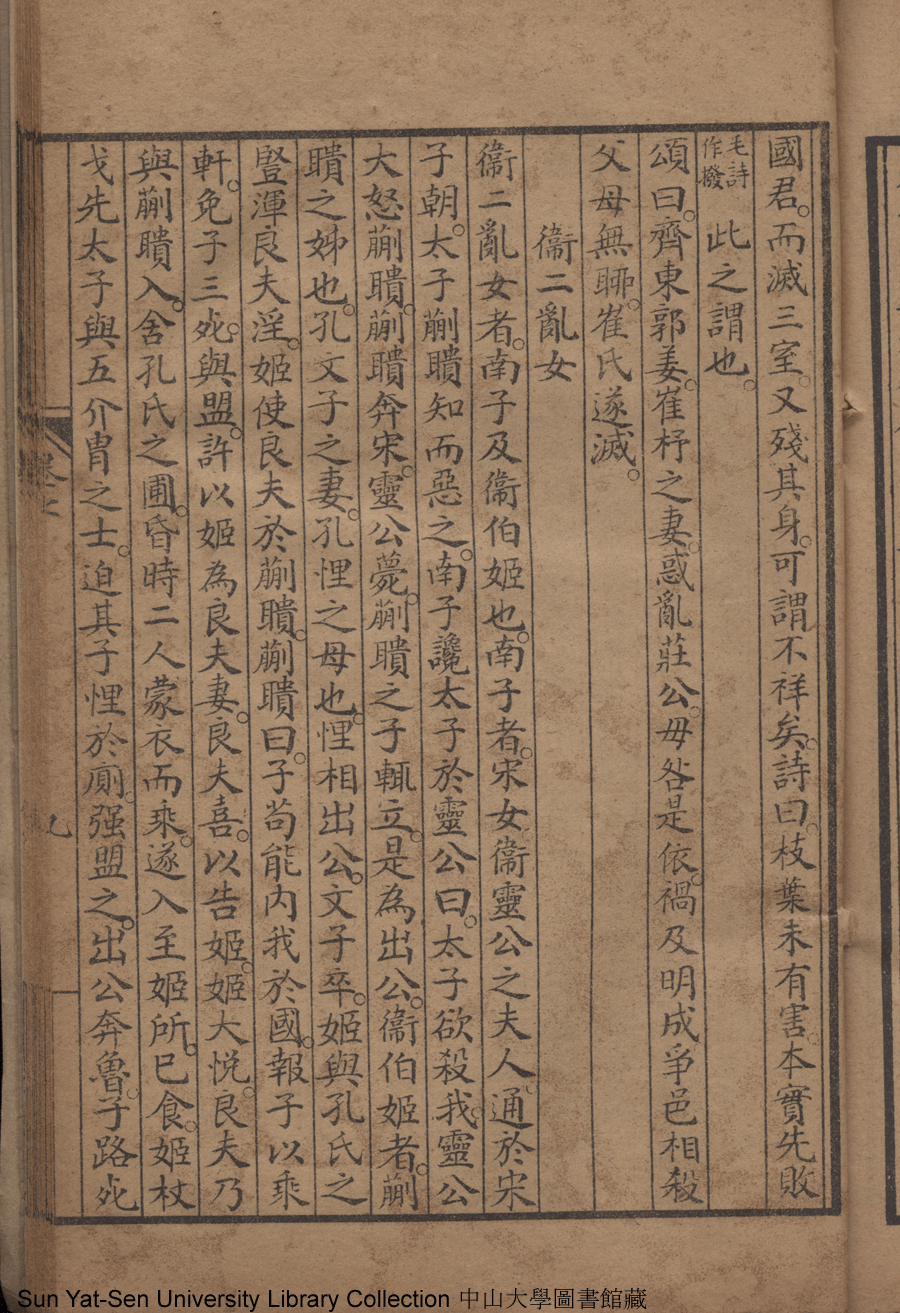 國君。而滅三室。又殘其身。可謂不祥矣。詩曰。枝葉未有害。本實先敗
毛詩作撥 此之謂也。
頌曰。齊東郭姜。崔杼之妻。惑亂莊公。毋咎是依。禍及明成爭邑相殺
父母無聊。崔氏遂滅。
衞二亂女
衞二亂女者。南子及衞伯姬也。南子者。宋女衞靈公之夫人。通於宋
子朝。太子蒯聵知而惡之。南子讒太子於靈公曰。太子欲殺我。靈公
大怒蒯聵。蒯聵奔宋。靈公薨。蒯聵之子輒立。是為出公。衞伯姬者。蒯
聵之姊也。孔文子之妻。孔悝之母也。悝相出公。文子卒。姬與孔氏之
豎渾良夫淫。姬使良夫於蒯聵。蒯聵曰。子苟能内我於國。報子以乘
軒。免子三死。與盟。許以姬為良夫妻。良夫喜。以告姬。姬大悅。良夫乃
與蒯聵入。舍孔氏之圃。昏時二人蒙衣而乘。遂入至姬所。已食。姬杖
戈先太子與五介冑之士。迫其子悝於廁。强盟之。出公奔魯。子路死
卷七
九
Sun Yat-Sen University Library Collection 中山大學圖書館藏